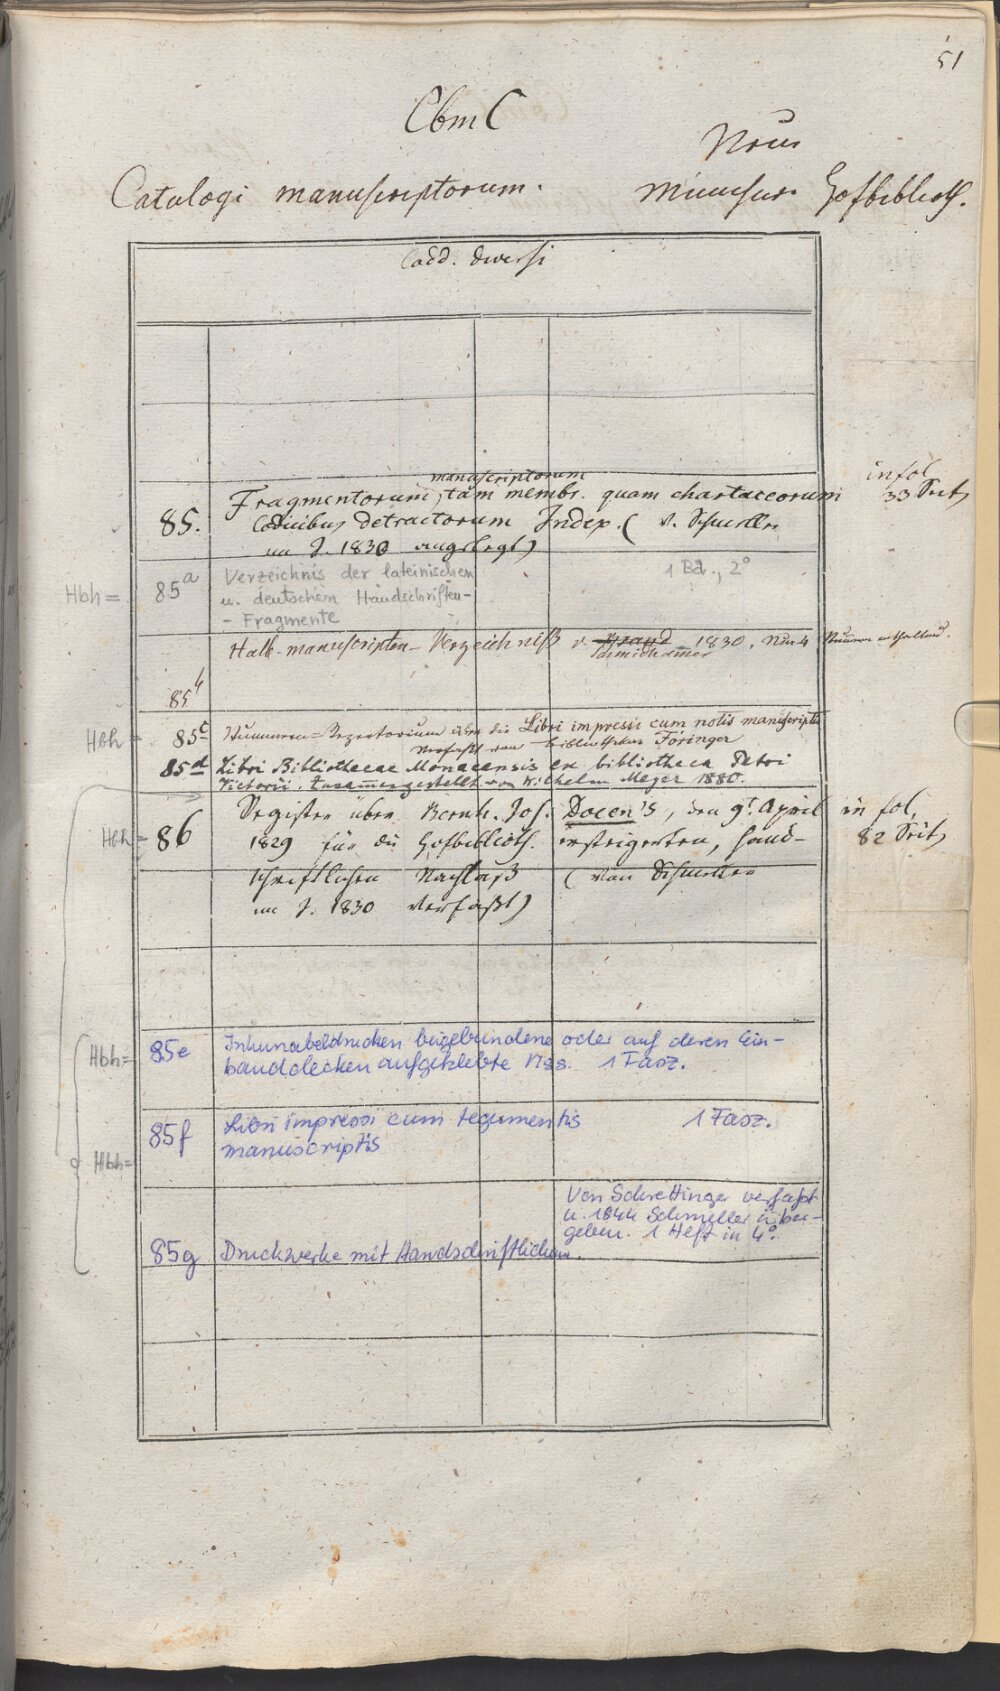 51
CbmC
Neue
Catalogi manuscriptorum.
Münchner Hofbiblioth.
Codd. diversi
manuscriptorum
in fol.
Fragmentorum, tam membr. quam chartaceorum
33 Seit.
85. Codicibus detractorum Index. (v. Schmeller
im J. 1830 angelegt)
Hbh = 85a Verzeichnis der lateinischen 1 Bd., 2°
u. deutschen Handschriften-
- Fragmente
Halb-manuscripten-Verzeichniß v. Schmidhamer 1830, Nur 4 Nummern enthaltend.
85b
Hbh 85c Nummern=Repertorium über die Libri impressi cum notis manuscriptis
verfaßt von Bibliothekar Föringer
85d Libri Bibliothecae Monacensis ex bibliotheca Petri
Victorii. Zusammengestellt von Wilhelm Meyer 1880.
Hbh = 86 Register über Bernh. Jos. Docen's, den 9t. April in fol.
1829 für die Hofbiblioth. ersteigerten, hand- 82 Seit.
schriftlichen Nachlaß (von Schmeller
im J. 1830 verfaßt)
Hbh= 85e Inkunabeldrucken beigebundene oder auf deren Ein-
banddecken aufgeklebte Hss. 1 Fasz.
85f Libri impressi cum tegumentis 1 Fasz.
Hbh= manuscriptis
Von Schrettinger verfaßt
u. 1844 Schmeller überge-
geben. 1 Heft in 4°.
85g Druckwerke mit Handschriftlichem.